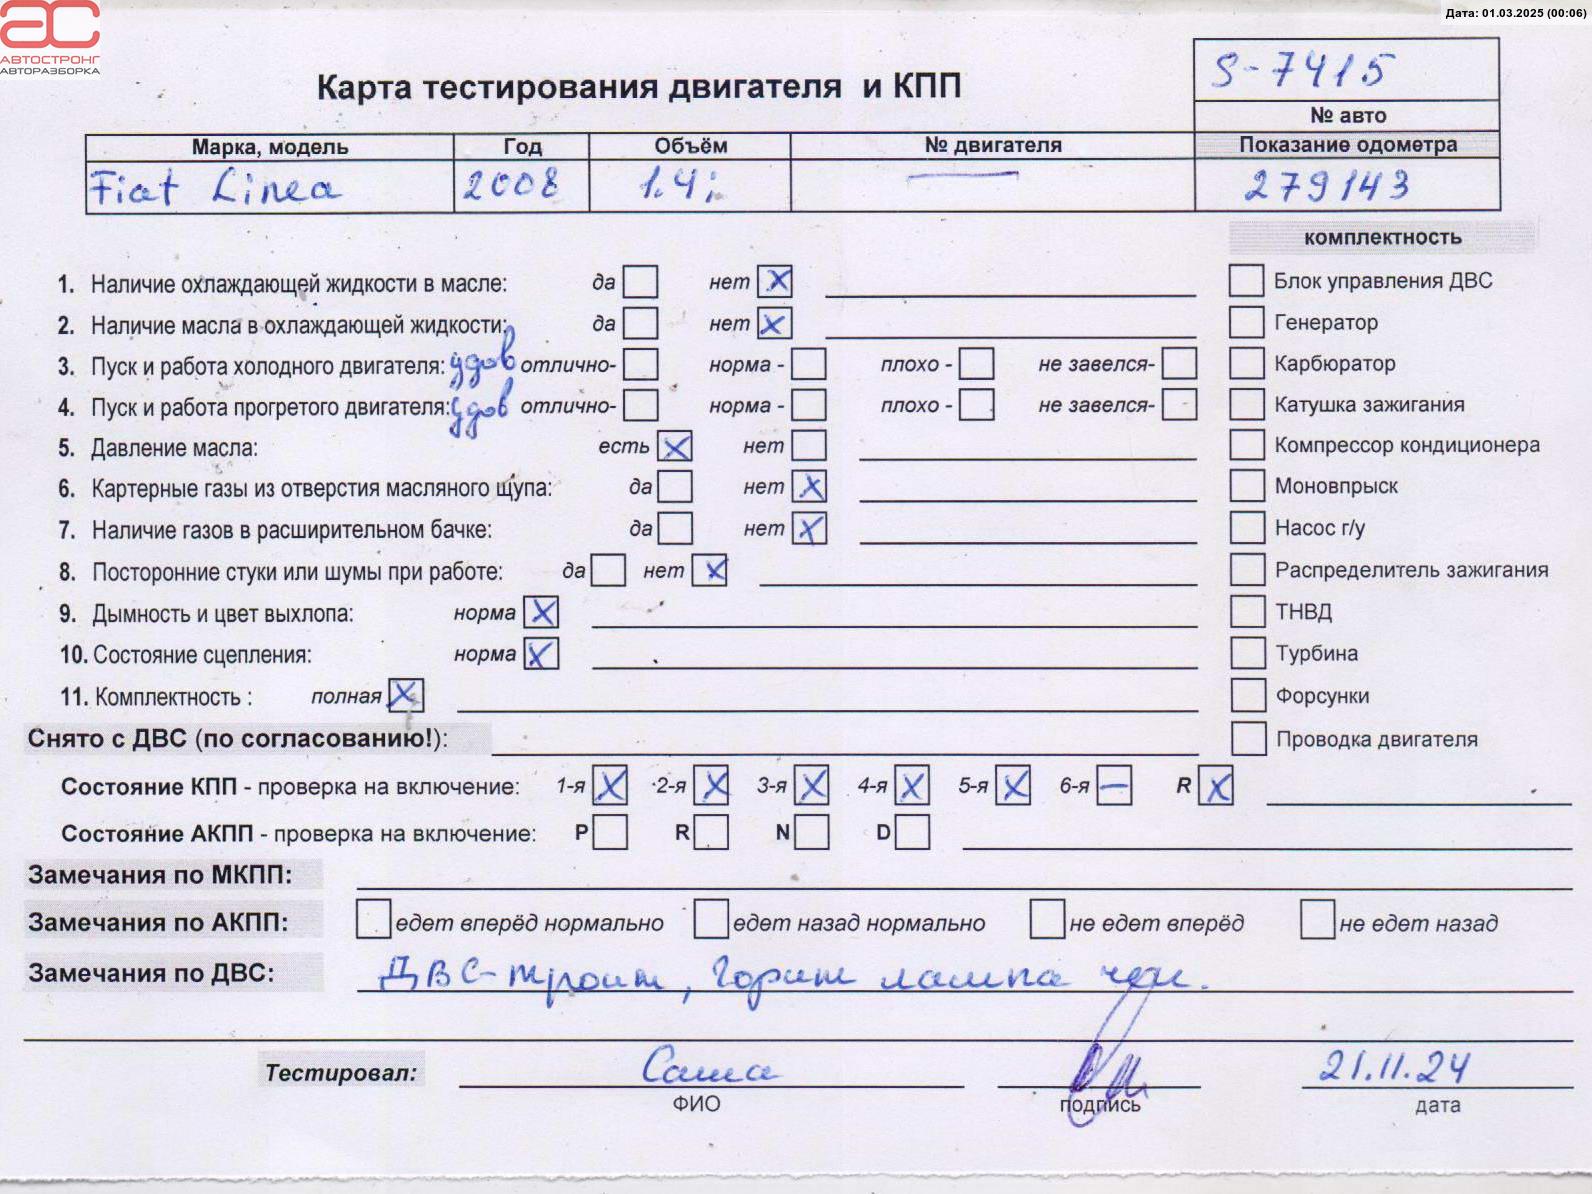 Дата: 01.03.2025 (00:06)
АС
АВТОСТРОНГ
АВТОРАЗБОРКА
Карта тестирования двигателя и КПП
S-7415
№ авто
Марка, модель Год Объём № двигателя Показание одометра
Fiat Linea 2008 1.4i — 279143
комплектность
1. Наличие охлаждающей жидкости в масле: да нет X Блок управления ДВС
2. Наличие масла в охлаждающей жидкости: да нет X Генератор
3. Пуск и работа холодного двигателя: удов отлично- норма - плохо - не завелся- Карбюратор
4. Пуск и работа прогретого двигателя: удов отлично- норма - плохо - не завелся- Катушка зажигания
5. Давление масла: есть X нет Компрессор кондиционера
6. Картерные газы из отверстия масляного щупа: да нет X Моновпрыск
7. Наличие газов в расширительном бачке: да нет X Насос г/у
8. Посторонние стуки или шумы при работе: да нет X Распределитель зажигания
9. Дымность и цвет выхлопа: норма X ТНВД
10. Состояние сцепления: норма X Турбина
11. Комплектность : полная X Форсунки
Снято с ДВС (по согласованию!): Проводка двигателя
Состояние КПП - проверка на включение: 1-я X 2-я X 3-я X 4-я X 5-я X 6-я — R X
Состояние АКПП - проверка на включение: P R N D
Замечания по МКПП:
Замечания по АКПП: едет вперёд нормально едет назад нормально не едет вперёд не едет назад
Замечания по ДВС: ДВС-троит, горит лампа чек.
Тестировал: Саша 21.11.24
ФИО подпись дата